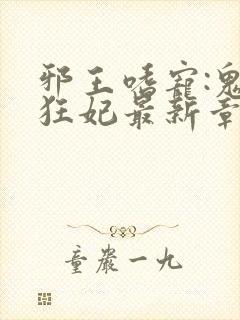 邪王嗜寵:鬼
狂妃最新章
童嚴一九